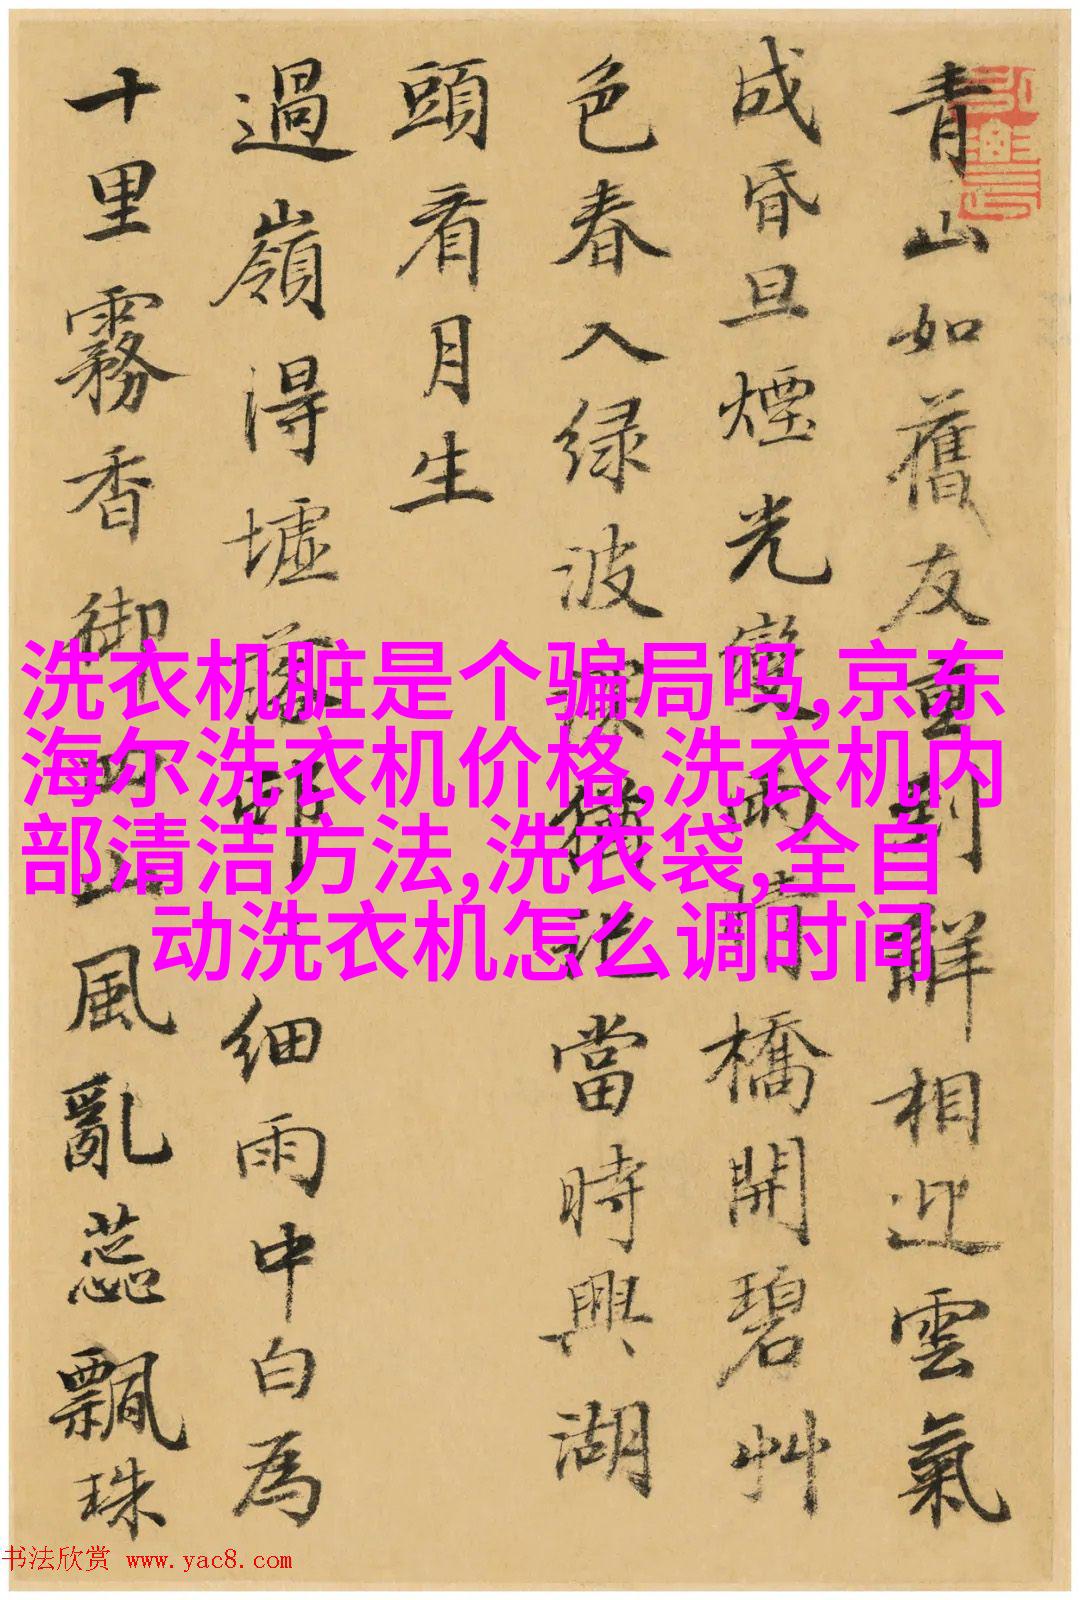 青山如舊友重到相迎雲氣
成昏旦煙光變雨晴橋開碧艸
色春入绿波深猶記當時興湖
頭看月生
過嶺得墟落細雨中白為
十里霧香御四山風亂蕊飄珠
洗衣机脏是个骗局吗,京东
海尔洗衣机价格,洗衣机内
部清洁方法,洗衣袋,全自
动洗衣机怎么调时间
书法欣赏 www.yac8.com